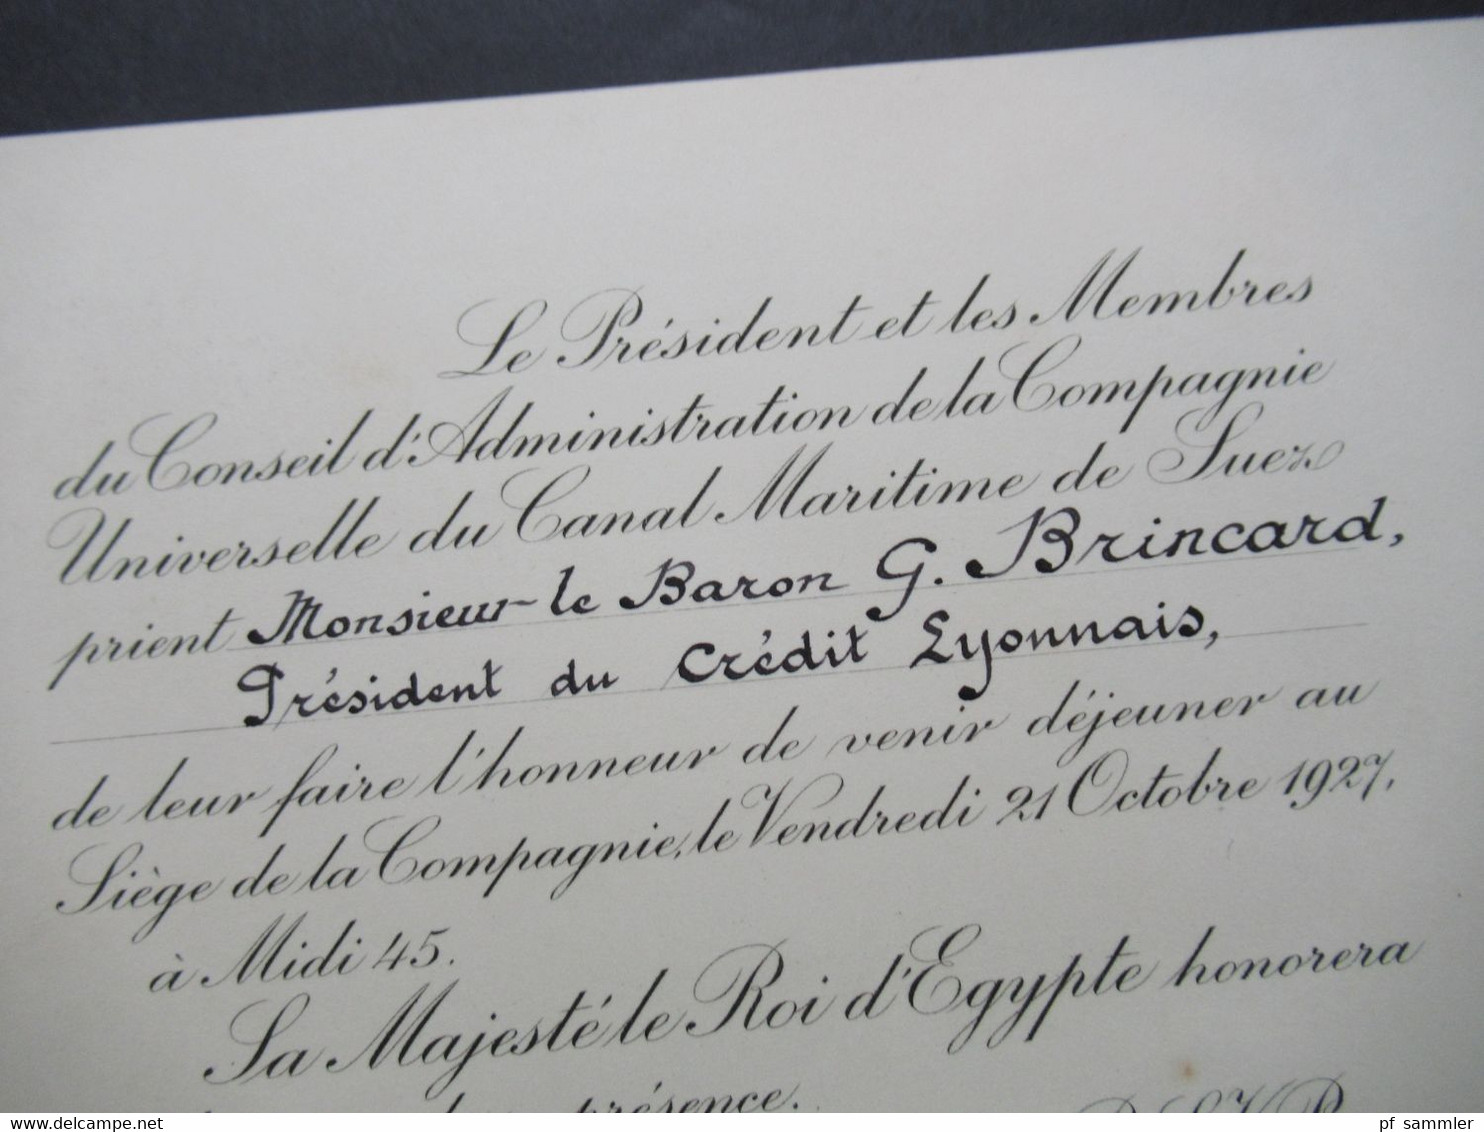 Le Président et les Membres
du Conseil d'Administration de la Compagnie
Universelle du Canal Maritime de Suez
prient Monsieur le Baron G. Brincard,
Président du Crédit Lyonnais,
de leur faire l'honneur de venir déjeuner au
Siège de la Compagnie, le Vendredi 21 Octobre 1927,
à Midi 45.
Sa Majesté le Roi d'Egypte honorera
présence.
www.delcampe.net
pf sammler